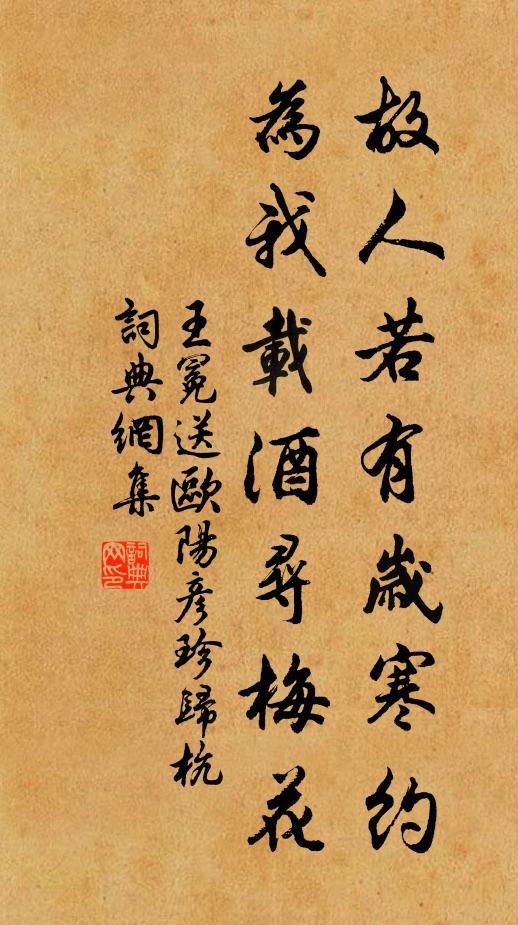 故人若有歲寒約
為我載酒尋梅花
王冕送歐陽彥珍歸杭
詞典網集
詞典網印